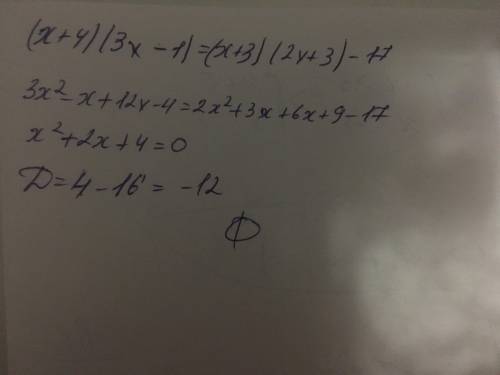 (x+4)(3x-1)=(x+3)(2x+3)-17
3x²-x+12x-4=2x²+3x+6x+9-17
x²+2x+4=0
D=4-16=-12
Ф